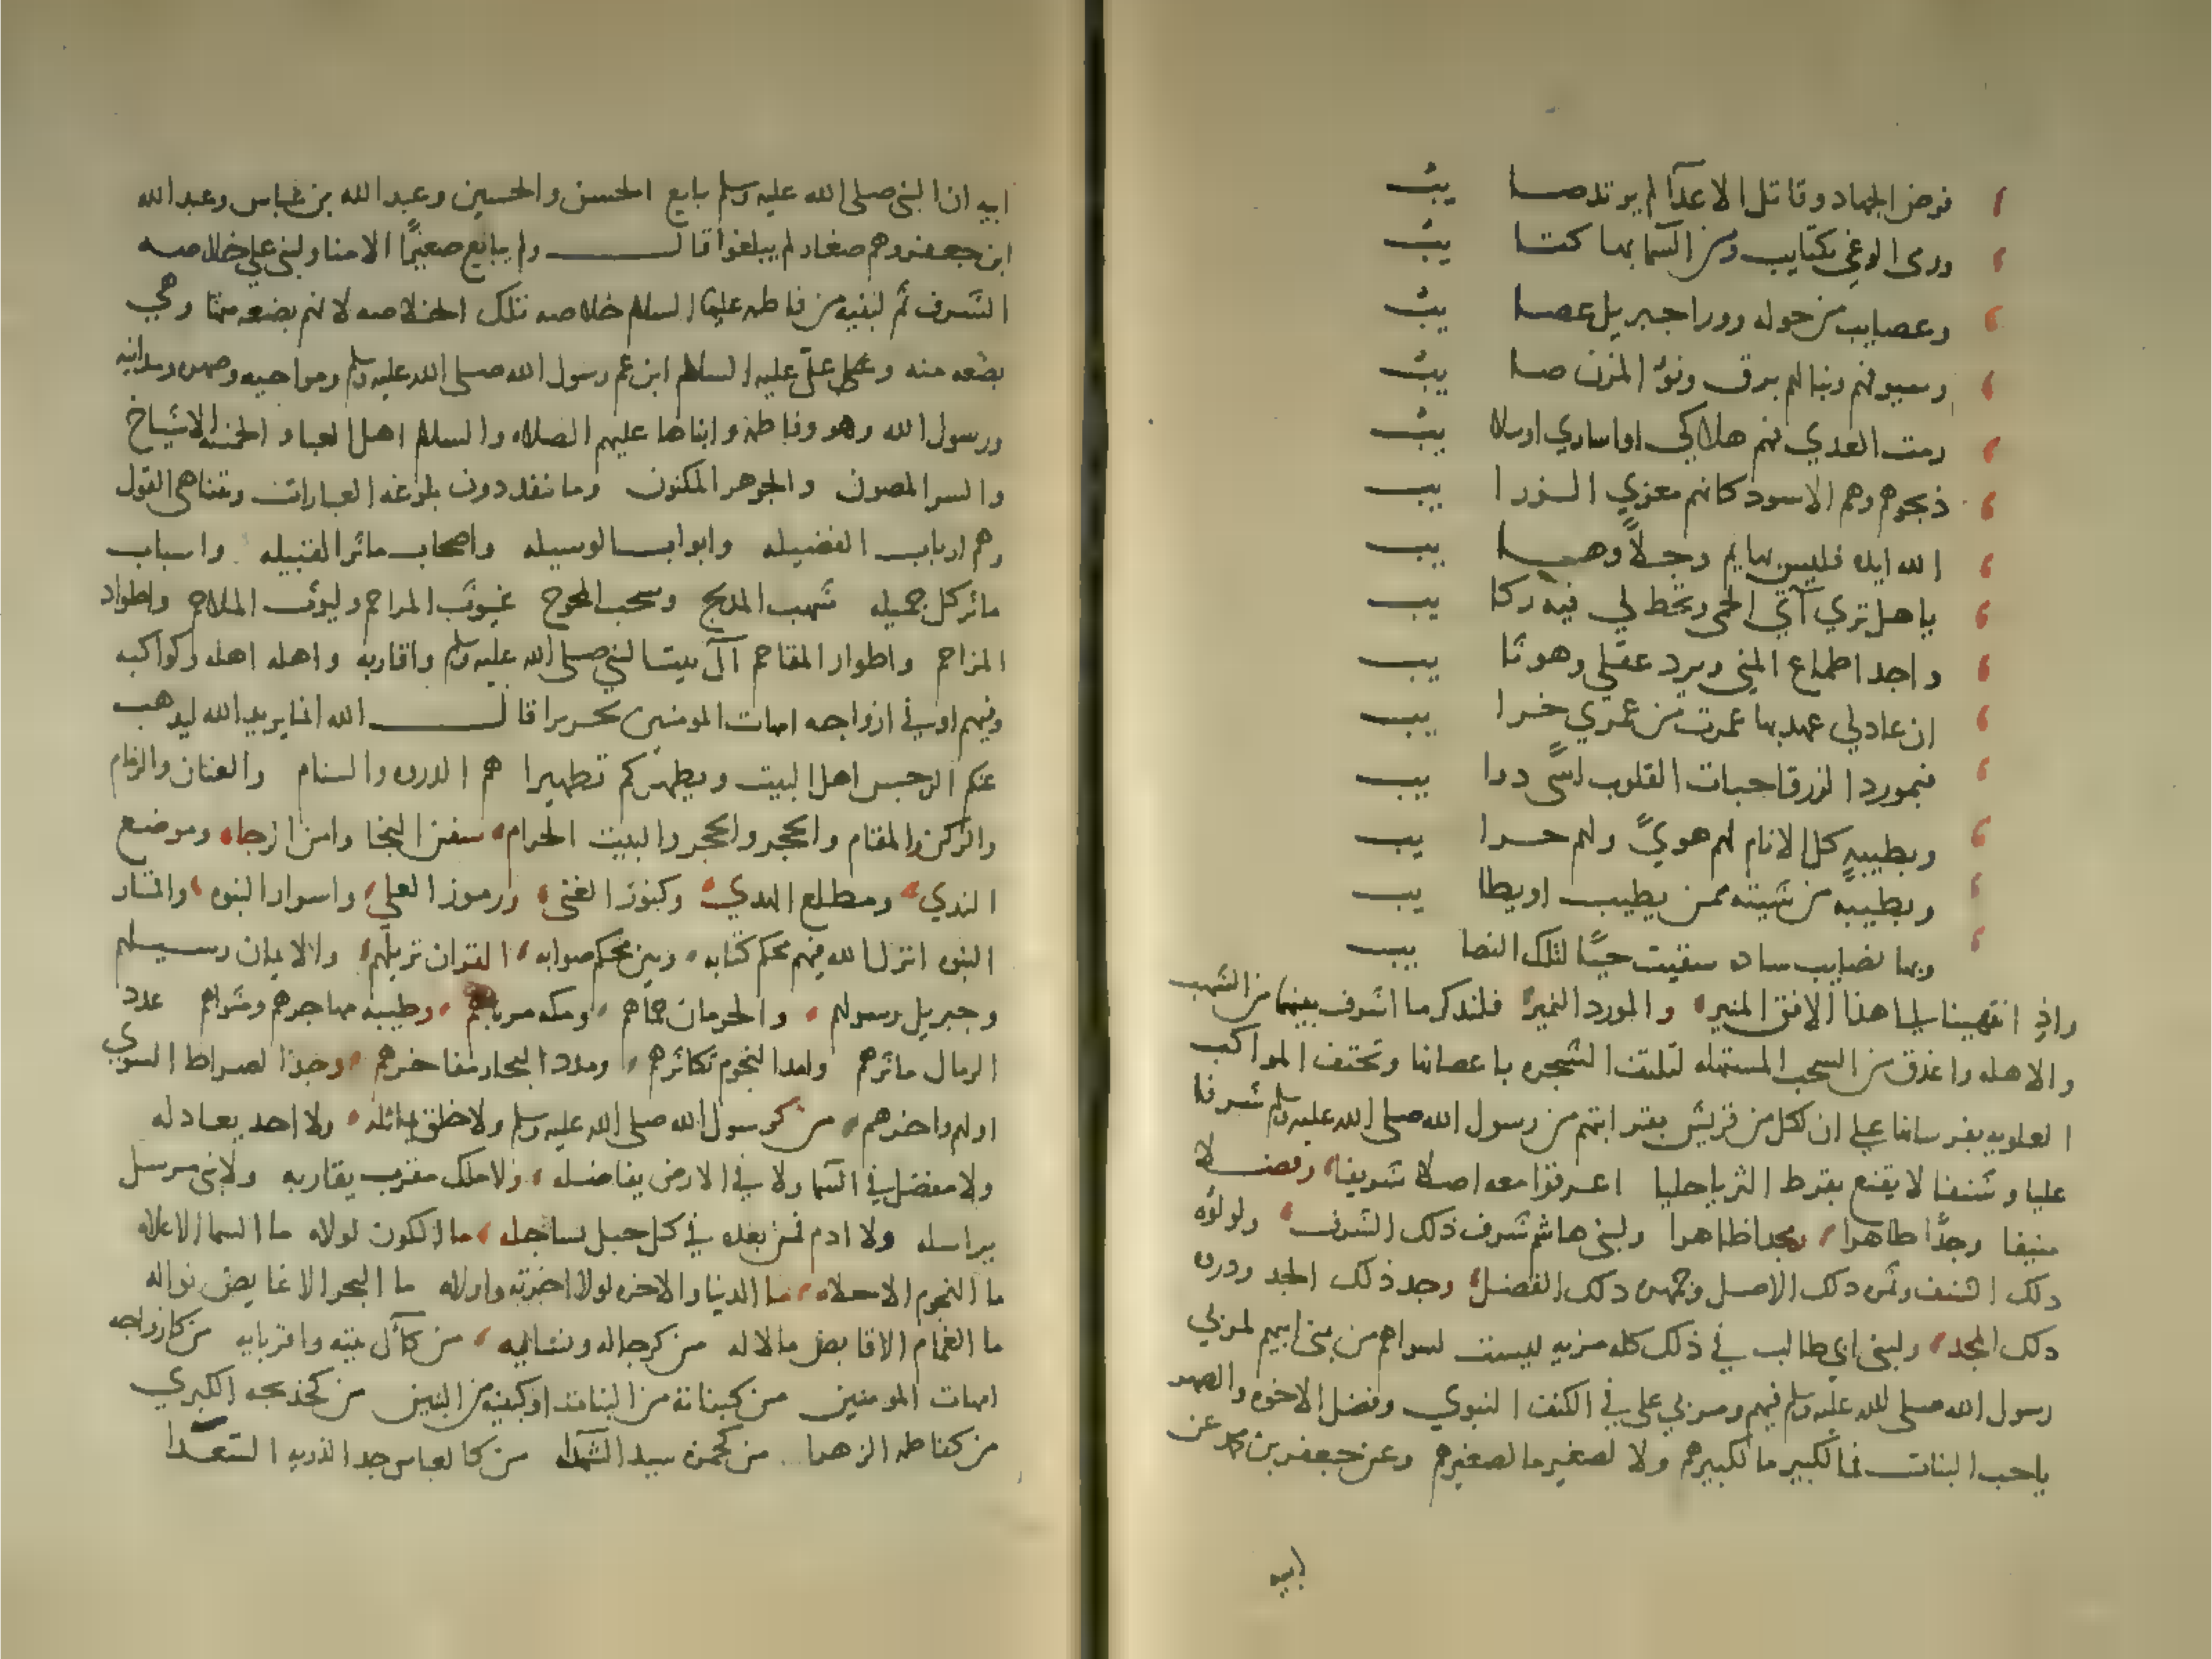 فرض الجهاد وقاتل الاعدآ لم يرتد صا يب
ورمى الوغى بكتايب ومن السما بها كتا يب
وعصايب من حوله وورا جبريل عصا يب
وسيوفهم دنيا لهم برق ونؤ المزن صا يب
رمت العدي فهم هلاكى او اساري او سلا يب
ذبحوهم وهم الاسود كانهم معزي الزرا يب
الله ايده فليس بهايم وجلاً وهــا يب
يا هل تري آتي الحمى وتحط لي فيه ركا يب
واجد اطماع المني ويرد عقلي وهو ثا يب
ان عاد لي عهد بها عمرت من عمري خرا يب
فبمورد الزرقا حبات القلوب اسًى دوا يب
وبطيبةٍ كل الانام لهم هويً ولهم حرا يب
وبطيبه من شيته ممن يطيب او يطا يب
وبها نصايب ساده سقيت حيًا لتلك النصا يب
واذ انتهينا الى هذا الافق المنير والمورد النمير فلنذكر ما اشرف بينهما من الشهب
والاهله واغدق من السحب المستهله لتلتف الشجره باغصانها وتحتف المواكب
العلويه بفرسانها على ان لكل من قريش بقرابتهم من رسول الله صلى الله عليه وسلم شرفا
عليا وشنفا لا يقنع بقرط الثريا حليا اعرقوا معه اصلا شريفا وفضلا
منيفا وجدًا طاهرا ومجدا ظاهرا ولبني هاشم شرف ذلك الشرف ولولؤه
دلك الشنف وثمره دلك الاصل وجمهره دلك الفضل وجد ذلك الجد ودره
دلك المجد ولبني ابي طالب في ذلك كله مزيه ليست لسواهم من بني ابيهم لمربي
رسول الله صلى الله عليه وسلم فيهم ومربي على في الكنف النبوي وفضل الاخوه والصهر
ياحب البنات فما لكبير ما لكبيرهم ولا لصغير ما لصغيرهم وعن جعفر بن محمد عن
ابيه
ابيه ان النبي صلى الله عليه وسلم بايع الحسن والحسين وعبد الله بن عباس وعبد الله
ابن جعفر وهم صغار لم يبلغوا قال ولم يبايع صغيرًا الا منا ولبني علي خلاصه
الشرف ثم لبنيه من فاطمه عليها السلام خلاصه تلك الخلاصه لانهم بضعه منها وهي
بضعه منه ومحل علي عليه السلام ابن عم رسول الله صلى الله عليه وسلم ومواخيه وصهره وسلالته
ورسول الله وهو وفاطمه وابناها عليهم الصلاه والسلام اهل العبا والخمسه الاشياخ
والسر المصون والجوهر المكنون وما تنفد دون بلوغه العبارات وتتناهى القول
وهم ارباب الفضيله وابواب الوسيله واصحاب ماثر القبيله واسباب
ماثر كل جميله شهب المدلج وسحب المحوج غيوث المراحم وليوث الملاحم واطواد
المزاحم واطوار المقاحم آل بيت النبي صلى الله عليه وسلم واقاربه واهله اهله وكواكبه
وفيهم او في ازواجه امهات المومنين تحريرا قال الله انما يريد الله ليدهب
عنكم الرجس اهل البيت ويطهركم تطهيرا هم الذروه والسنام والعنان والزمام
والركن والمقام والحجر والحجر والبيت الحرام سفن النجا وامن الرجا وموضع
الندي ومطلع الهدي وكنوز الغنى ورموز العلي واسوار النبوه والمنار
النبوه انزل الله فيهم محكم كتابه وبين محكم صوابه القران نزيلهم والايمان رسيلهم
وجبريل رسولهم والحرمان حماهم ومكه مرباهم وطيبه مهاجرهم ومثواهم عدد
الرمال ماثرهم وامدا النجوم تكاثرهم ومدد البحار مفاخرهم وحدا لصراط السوي
اولهم واخرهم من كرسول الله صلى الله عليه وسلم ولا خلق يماثله ولا احد يعادله
ولا مفضل في السما ولا في الارض يفاضله ولا ملك مقرب يقاربه ولا نبي مرسل
يراسله ولا ادم فمن بعده في كل جبل يساجله ما الكون لولاه ما السما الاعلاه
ما النجوم الاحلاه ما الدنيا والاخره لولا اخرته واولاه ما البحر الا غايض نواله
ما الغمام الا قابض ما لاله من كرجاله ونسايه من كآل بيته واقربايه من كازواجه
امهات المومنين من كبناته من البنات او كبنيه من البنين من كخديجه الكبري
من كفاطمه الزهرا من كحمزه سيد الشهدا من كالعباس جد الذريه السعدا